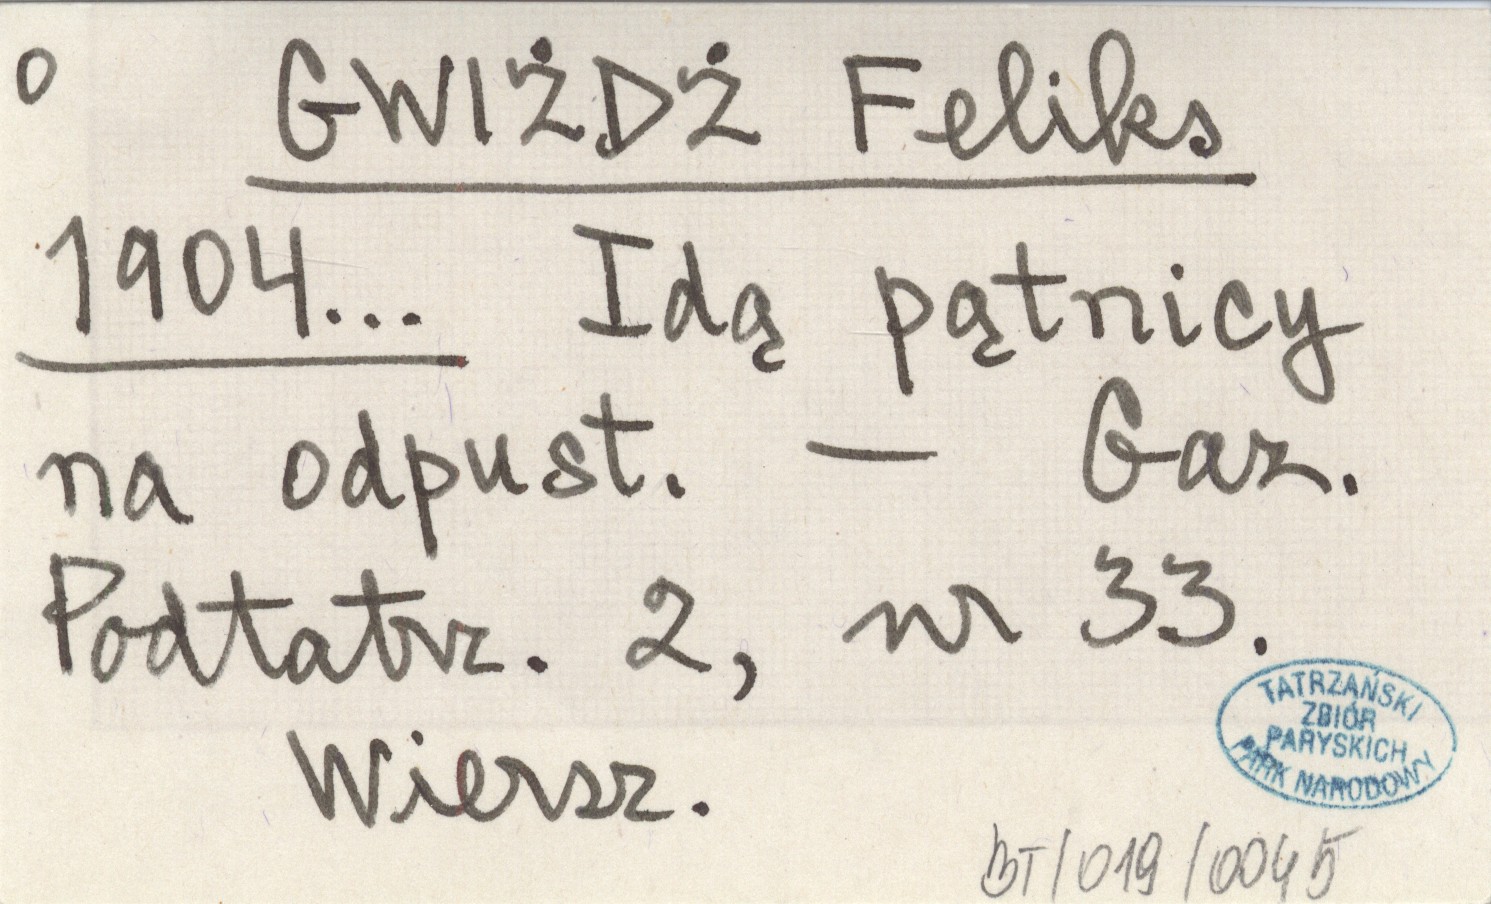 o GWIŻDŻ Feliks
1904... Idą pątnicy
na odpust. — Gaz.
Podtatrz. 2, nr 33.
Wiersz.
TATRZAŃSKI
ZBIÓR
PARYSKICH
PARK NARODOWY
BT/019/0045